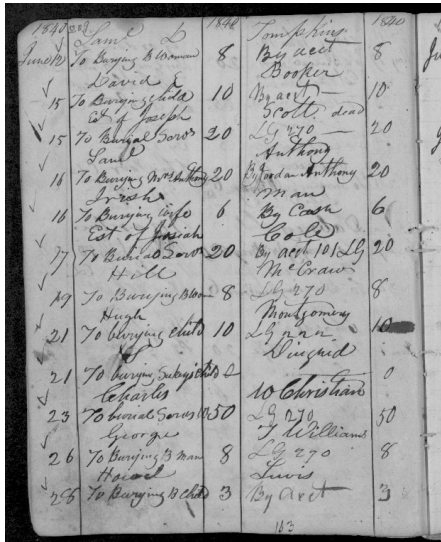 1840 1840 Tompkins 1840
Saml
June 12 To Burying B Woman 8 By acct 8
David Booker
15 To Burying child 10 By acct 10
Est of Joseph Scott dead
15 To Burial Servs 20 LG 270 20
Saml Anthony
16 To Burying Mrs Anthony 20 By Jordan Anthony 20
Irish Man
16 To Burying wife 6 By Cash 6
Est of Josiah Cole
17 To Burial Servs 20 By acct 101 LG 20
Hill McCraw
19 To Burying B 8 LG 270 8
Hugh Montgomery
21 To burying child 10 LG 222 10
21 To burying 0 0
Charles W Christian
23 To burial Servs 50 LG 270 50
George T Williams
26 To Burying B Man 8 LG 270 8
28 To Burying B child 3 By acct 3
163